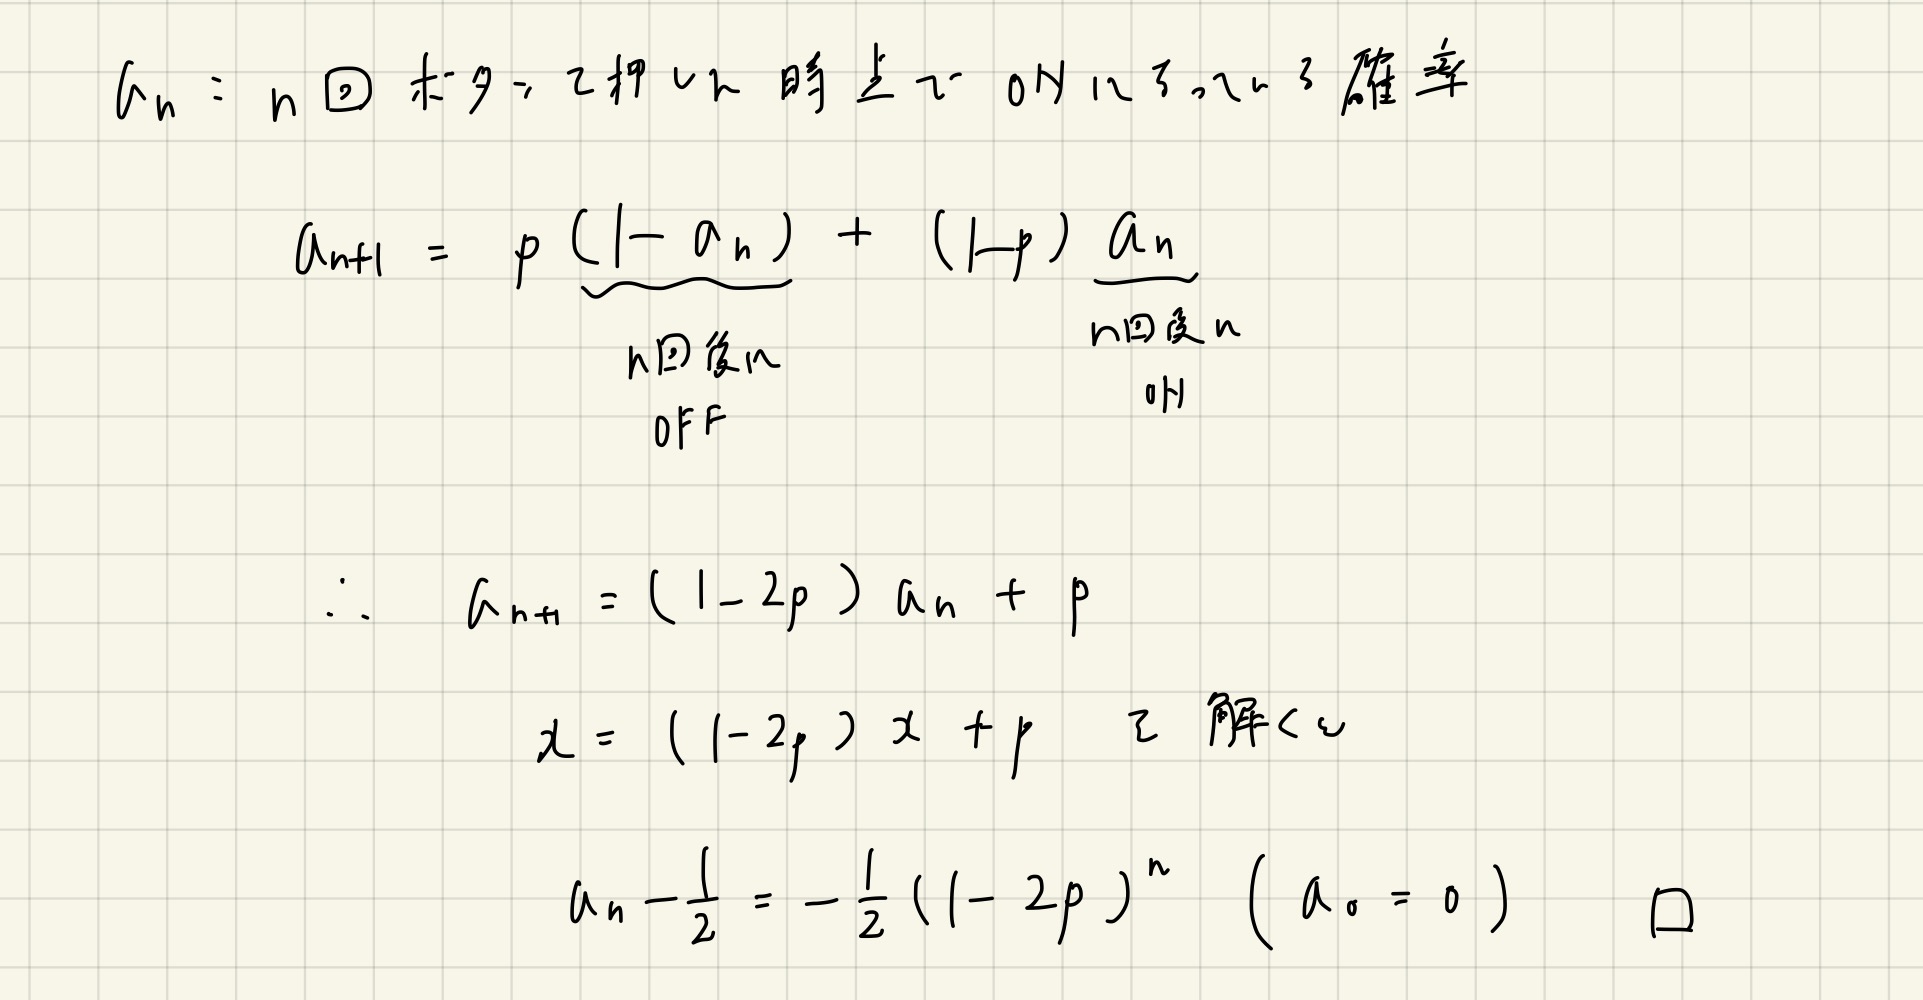 a_n : n回ボタンを押した時点で ONになっている確率
a_{n+1} = p(1 - a_n) + (1-p) a_n
n回後に
OFF
n回後に
ON
∴ a_{n+1} = (1-2p) a_n + p
x = (1-2p) x + p を解くと
a_n - 1/2 = -1/2 (1-2p)^n (a_0 = 0) □